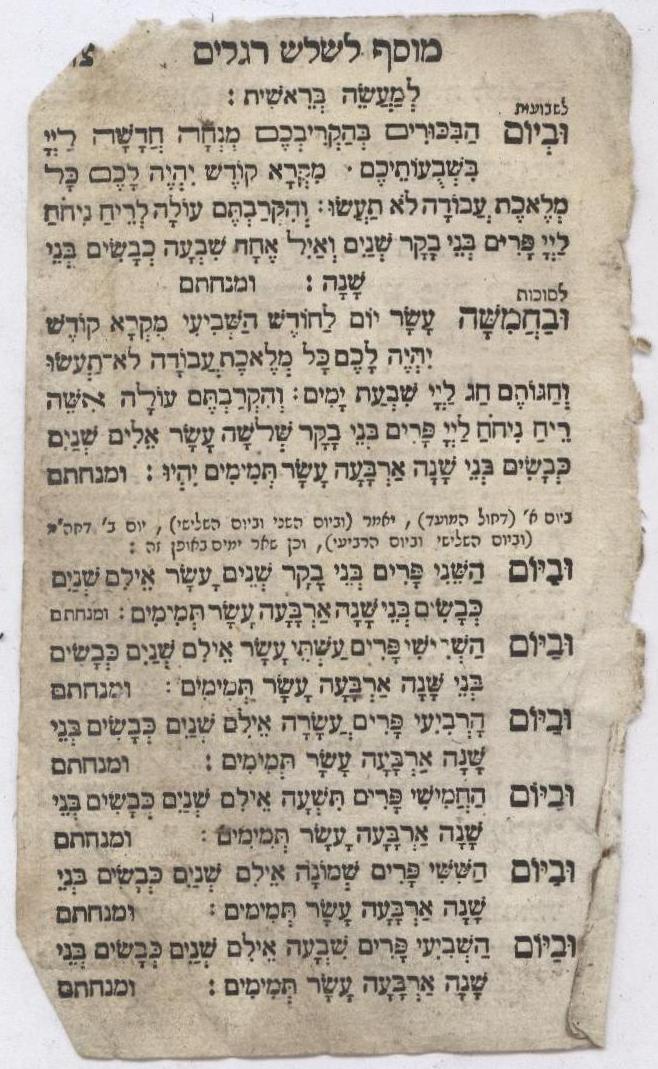 מוסף לשלש רגלים
לְמַעֲשֵׂה בְּרֵאשִׁית :
לשבועות
וּבְיוֹם הַבִּכּוּרִים בְּהַקְרִיבְכֶם מִנְחָה חֲדָשָׁה לַיְיָ
בְּשָׁבֻעוֹתֵיכֶם · מִקְרָא קוֹדֶשׁ יִהְיֶה לָכֶם כָּל
מְלֶאכֶת עֲבוֹדָה לֹא תַעֲשׂוּ : וְהִקְרַבְתֶּם עוֹלָה לְרֵיחַ נִיחֹחַ
לַיְיָ פָּרִים בְּנֵי בָקָר שְׁנַיִם וְאַיִל אֶחָת שִׁבְעָה כְבָשִׂים בְּנֵי
שָׁנָה : ומנחתם
לסוכות
וּבַחֲמִשָּׁה עָשָׂר יוֹם לַחוֹדֶשׁ הַשְּׁבִיעִי מִקְרָא קוֹדֶשׁ
יִהְיֶה לָכֶם כָּל מְלֶאכֶת עֲבוֹדָה לֹא־תַעֲשׂוּ
וְחַגּוֹתֶם חַג לַיְיָ שִׁבְעַת יָמִים : וְהִקְרַבְתֶּם עוֹלָה אִשֵּׁה
רֵיחַ נִיחֹחַ לַיְיָ פָּרִים בְּנֵי בָקָר שְׁלֹשָׁה עָשָׂר אֵלִים שְׁנַיִם
כְּבָשִׂים בְּנֵי שָׁנָה אַרְבָּעָה עָשָׂר תְּמִימִים יִהְיוּ : ומנחתם
ביום א' (דחול המועד) , יאמר (וביום השני וביום השלישי) , יום ב' דחה"מ
(וביום השלישי וביום הרביעי), וכן שאר ימים באופן זה :
וּבַיּוֹם הַשֵּׁנִי פָּרִים בְּנֵי בָקָר שְׁנֵים עָשָׂר אֵילִם שְׁנַיִם
כְּבָשִׂים בְּנֵי שָׁנָה אַרְבָּעָה עָשָׂר תְּמִימִים : ומנחתם
וּבַיּוֹם הַשְּׁלִישִׁי פָּרִים עַשְׁתֵּי עָשָׂר אֵילִם שְׁנַיִם כְּבָשִׂים
בְּנֵי שָׁנָה אַרְבָּעָה עָשָׂר תְּמִימִים : ומנחתם
וּבַיּוֹם הָרְבִיעִי פָּרִים עֲשָׂרָה אֵילִם שְׁנַיִם כְּבָשִׂים בְּנֵי
שָׁנָה אַרְבָּעָה עָשָׂר תְּמִימִים : ומנחתם
וּבַיּוֹם הַחֲמִישִׁי פָּרִים תִּשְׁעָה אֵילִם שְׁנַיִם כְּבָשִׂים בְּנֵי
שָׁנָה אַרְבָּעָה עָשָׂר תְּמִימִים : ומנחתם
וּבַיּוֹם הַשִּׁשִּׁי פָּרִים שְׁמוֹנָה אֵילִם שְׁנַיִם כְּבָשִׂים בְּנֵי
שָׁנָה אַרְבָּעָה עָשָׂר תְּמִימִים : ומנחתם
וּבַיּוֹם הַשְּׁבִיעִי פָּרִים שִׁבְעָה אֵילִם שְׁנַיִם כְּבָשִׂים בְּנֵי
שָׁנָה אַרְבָּעָה עָשָׂר תְּמִימִים : ומנחתם